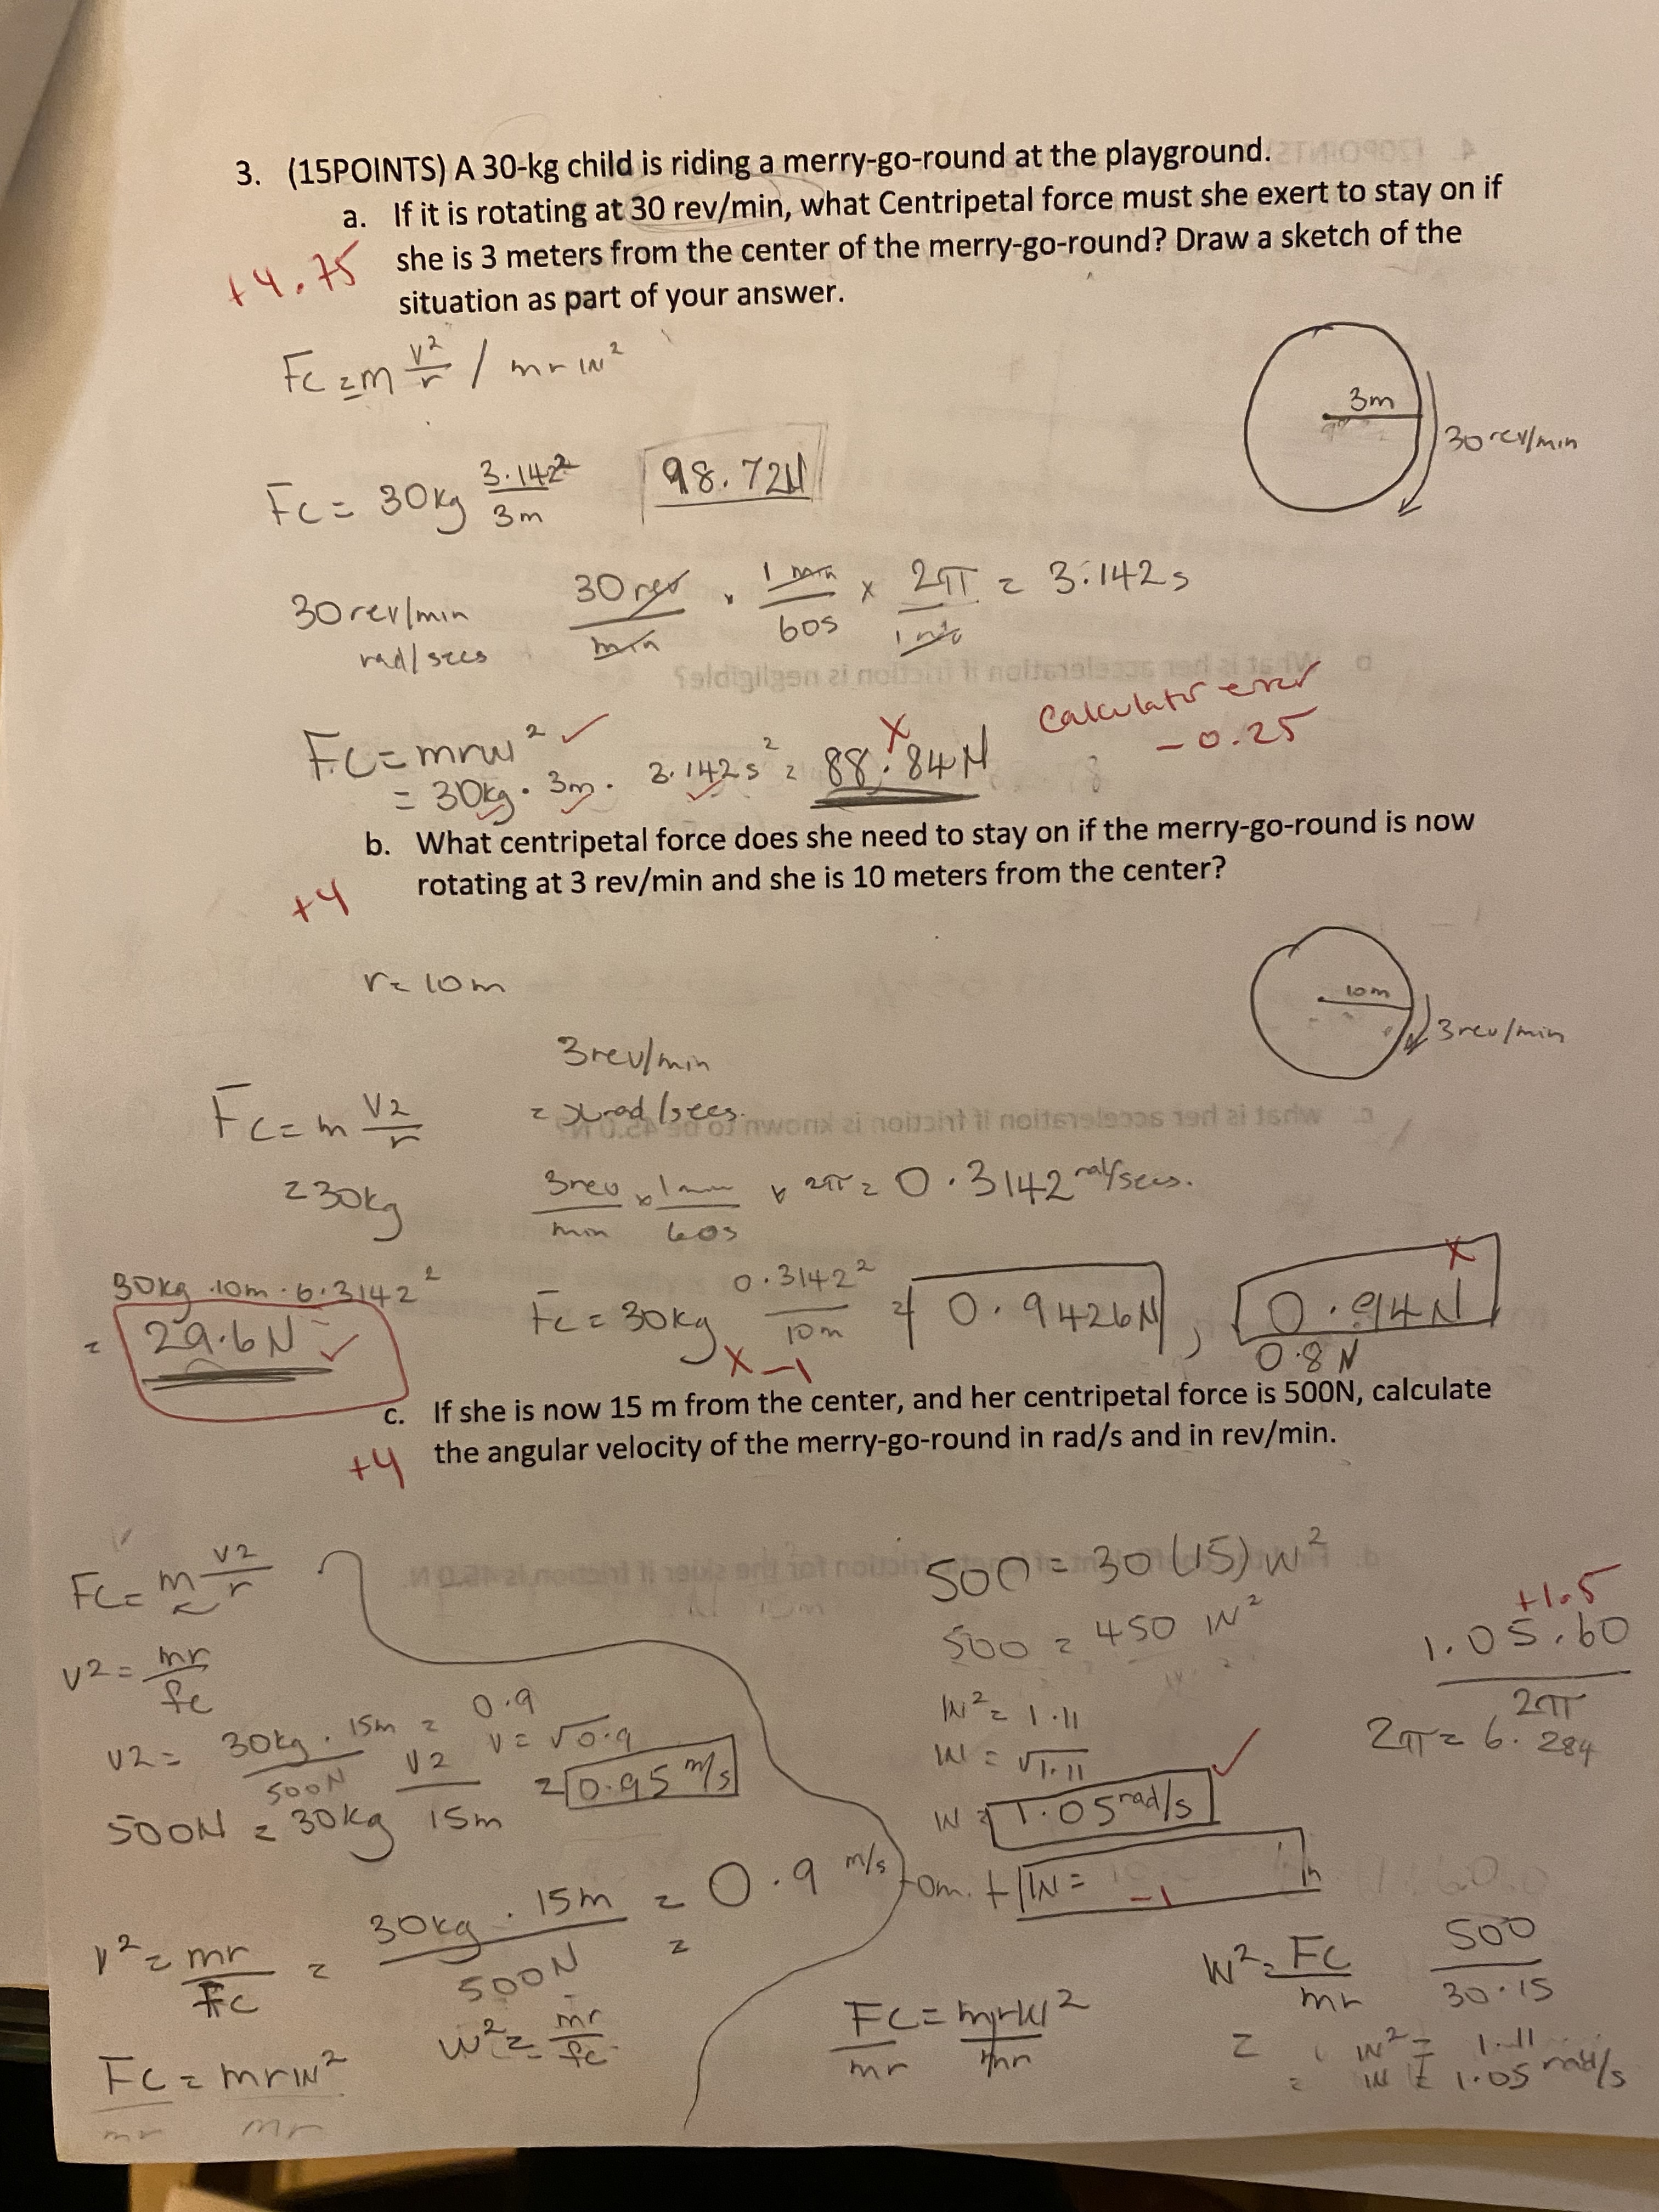 3. (15POINTS) A 30-kg child is riding a merry-go-round at the playground.
a. If it is rotating at 30 rev/min, what Centripetal force must she exert to stay on if
she is 3 meters from the center of the merry-go-round? Draw a sketch of the
situation as part of your answer.
+4.75
Fc = m v²/r / mrw²
3m
30 rev/min
Fc = 30kg 3.142²/3m
98.72N
30 rev/min
rad/secs
30 rev/min × 1 min/60s × 2π/1 = 3.142s
Calculator error
-0.25
Fc = mrw² ✓
= 30kg · 3m · 3.142s² = 88.84N X
b. What centripetal force does she need to stay on if the merry-go-round is now
rotating at 3 rev/min and she is 10 meters from the center?
+4
r = 10m
10m
3 rev/min
3rev/min
Fc = m v2/r
= x rad/secs.
= 30kg
3rev/min × 1 min/60s × 2π = 0.3142 rad/secs.
30kg · 10m · 0.3142²
= 29.6N ✓
Fc = 30kg 0.3142²/10m = 0.9426N, 0.94N X
0.8N
X -1
c. If she is now 15 m from the center, and her centripetal force is 500N, calculate
the angular velocity of the merry-go-round in rad/s and in rev/min.
+4
Fc = m v2/r
v2 = mr/fc
v2 = 30kg · 15m/500N = 0.9
v = √0.9
= 0.95 m/s
500N = 30kg v2/15m
v² = mr/Fc = 30kg · 15m/500N = 0.9 m/s
w² = mr/fc
Fc/mr = mrw²/mr
500 = 30(15)w²
500 = 450 w²
w² = 1.11
w = √1.11
w = 1.05 rad/s ✓
w =
-1
+1.5
1.05.60/2π
2π = 6.284
Fc/mr = mrw²/mr
w² = Fc/mr 500/30·15
= w² = 1.11
= w = 1.05 rad/s